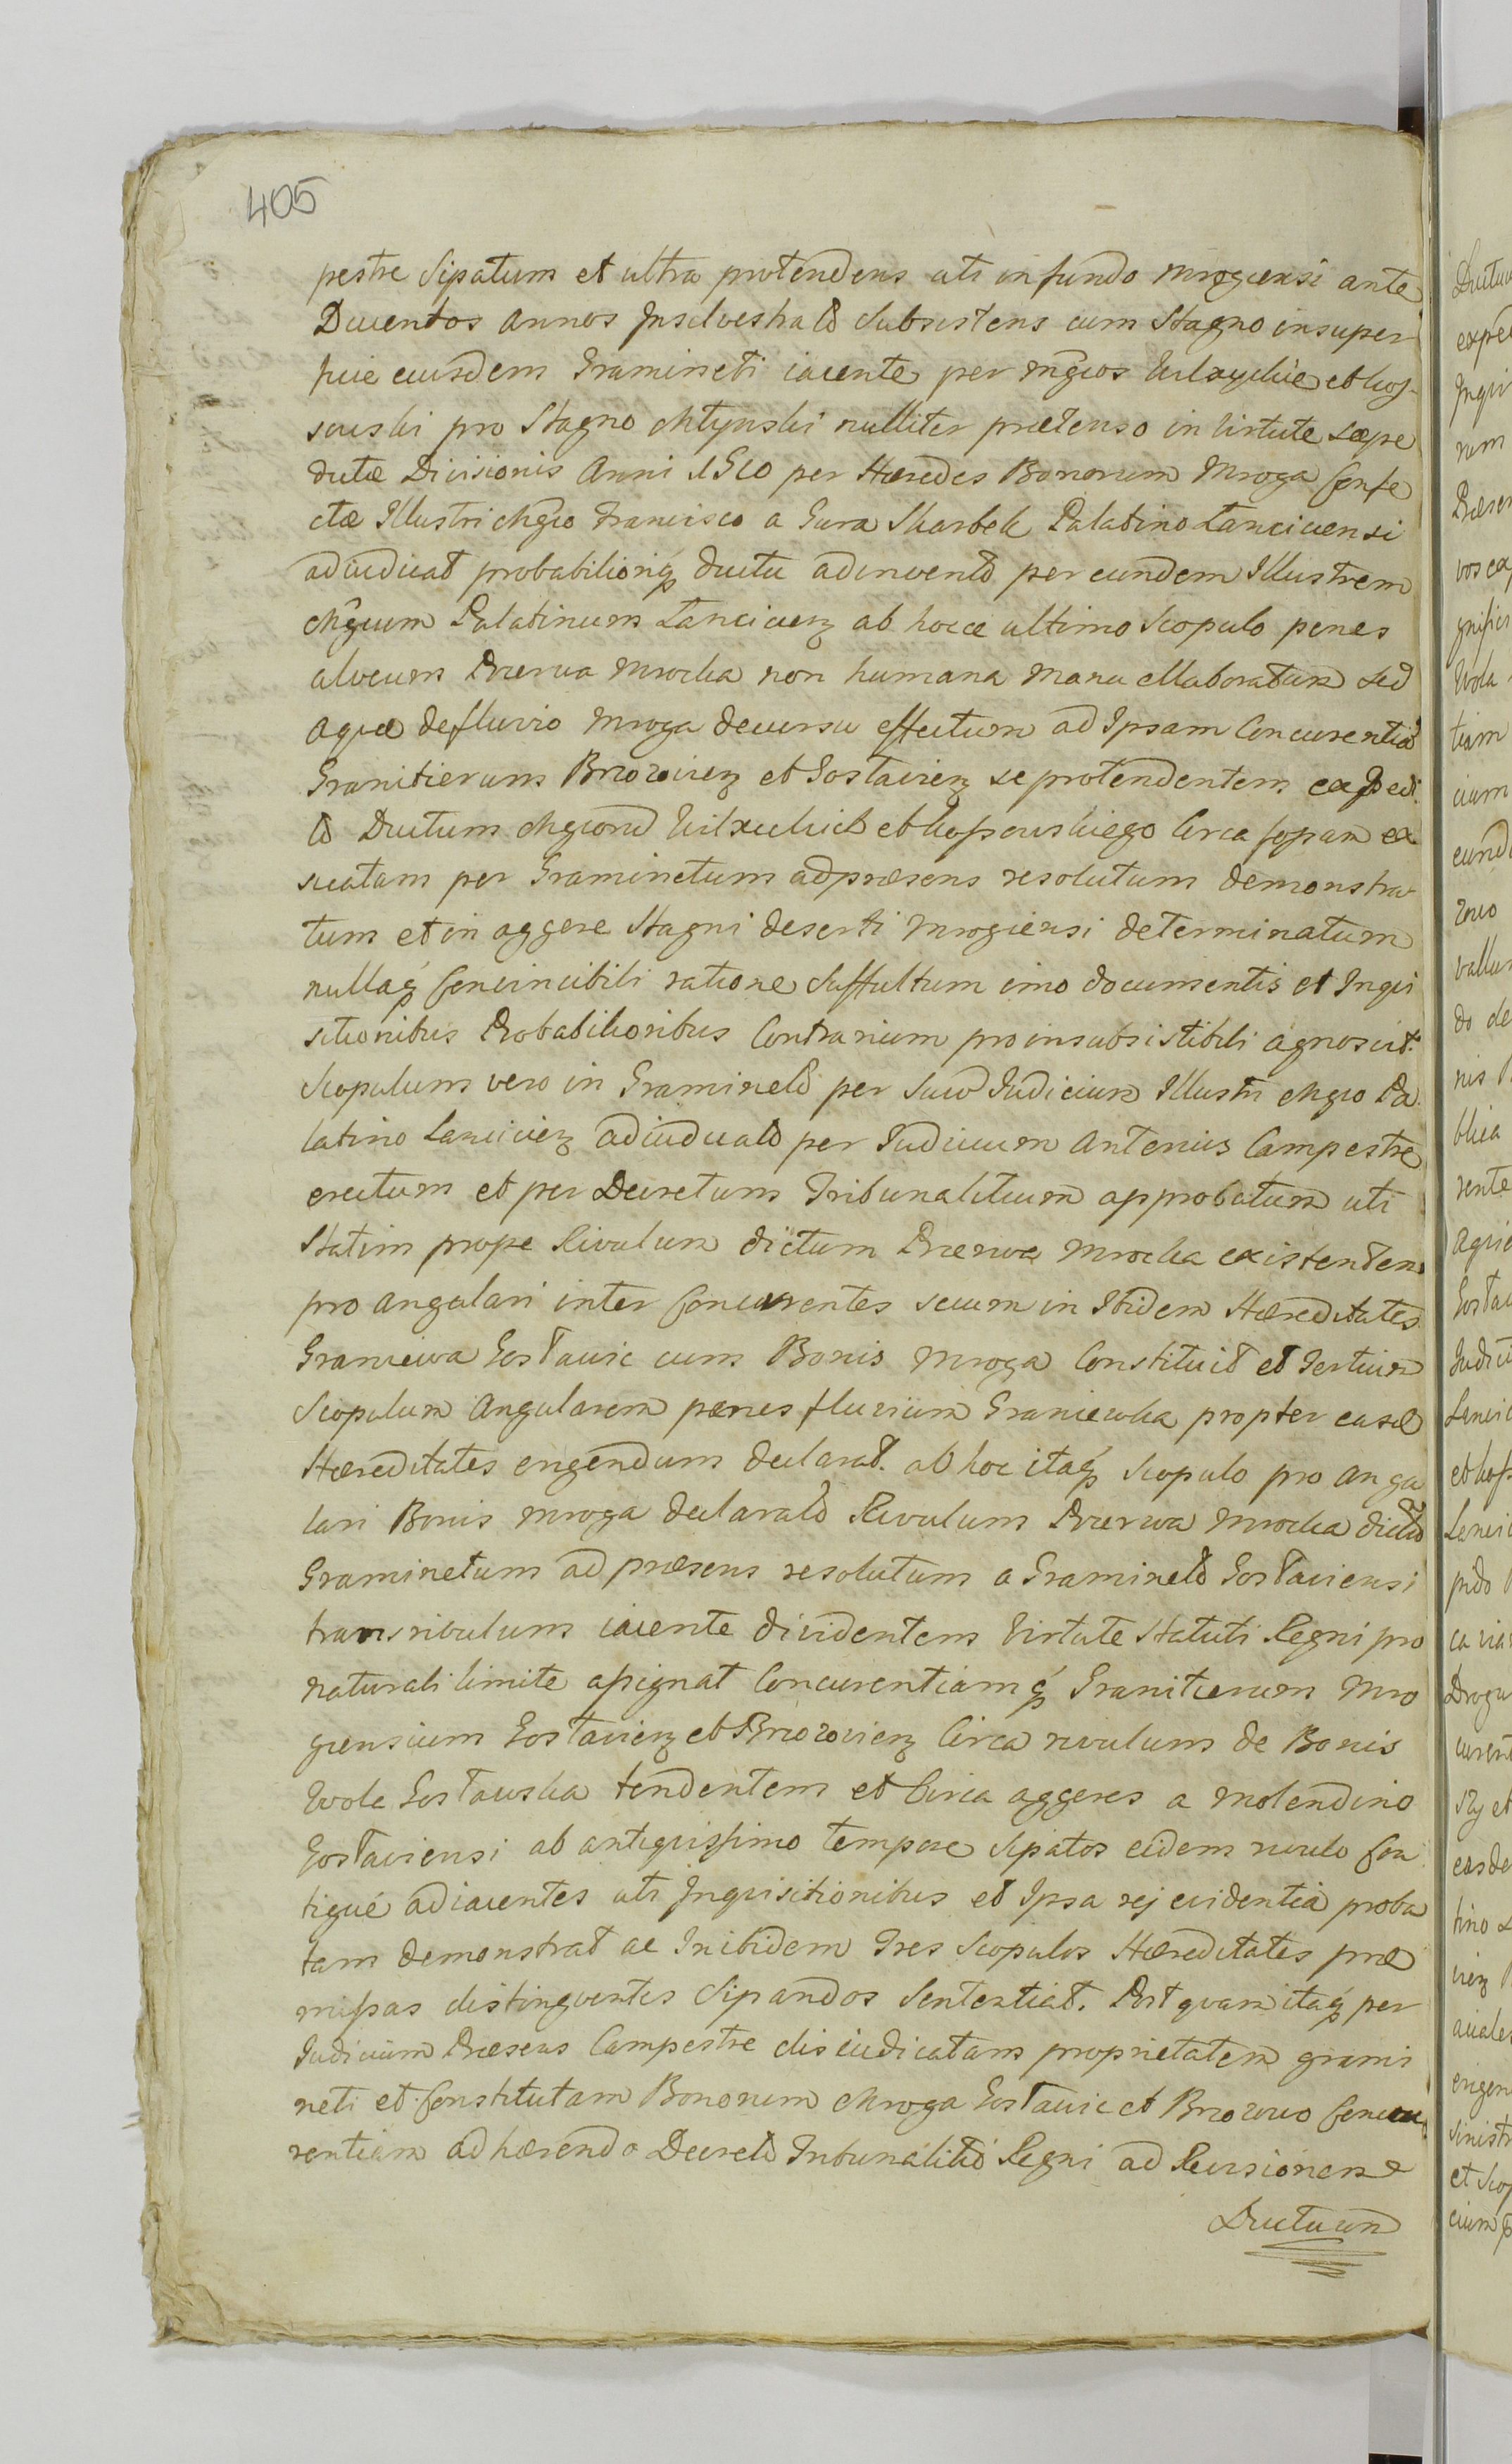 405
pestre Sipatum et ultra protendens uti in fundo Mrogiensi ante
Ducentos annos Insilvestrato Subsistens cum Stagno insuper
ficie eiusdem Gramineti iacente per Mgcos et Kos
souski pro Stagno Młynski nulliter prætenso in Virtute sæpe
dictæ Divisionis Anni 1510 per Hæredes Bonorum Mroga Confe
ctæ Illustri Mgco Francisco a Gura Skarbek Palatino Lanciciensi
adiudicat probabilioriq; ductu adinvento per eundem Illustrem
Mgcum Palatinum Lancicien; ab hocce ultimo Scopulo penes
alveum Przerwa Mrocka non humana manu ellaboratum sed
aquæ defluvio Mroga decursu effectum ad Ipsam Concurentiã
Granitierum Brzozoviens; et Gostavien; se protendentem expedi
to Ductum Mgcorum et Kossouskiego Circa fossam ex
siccatam per Graminetum ad præsens resolutum demonstra
tum et in aggere Stagni deserti Mrogiensi determinatum
nullaq; Convincibili ratione Suffultum imo documentis et Inqui
sitionibus Probabilioribus Contrarium pro insubsistibili agnoscit.
Scopulum vero in Gramineto per Suũ Judicium Illustri Mgco Pa
latino Lancicien; adiudicato per Judicium anterius Campestre
erectum et per Decretum Tribunalitium approbatum uti
Statim prope Rivulum dictum Przerwa Mrocka existentem
pro angulari inter Concurrentes secum in Ibidem Hæreditates
Graniewa Gosławic cum Bonis Mroga Constituit et Tertium
Scopulum Angularem pænes fluvium Graniewka propter easdẽ
Hæreditates erigendum declarat. ab hoc itaq; Scopulo pro angu
lari Bonis Mroga declarato Rivulum Przerwa Mrocka dictũ
Graminetum ad præsens resolutum a Gramineto Gosławiensi
trans rivulum iacente dividentem Virtute Statuti Regni pro
naturali limite assignat Concurentiamq; Granitierum Mro
giensium Gosławien; et Brzozovien; Circa rivulum de Bonis
Wola Gosławska tendentem et Circa aggeres a Molendino
Gosławiensi ab antiquissimo tempore Sipatos eidem rivulo Con
tigué adiacentes uti Inquisitionibus et Ipsa rej evidentia proba
tam demonstrat ac Inibidem Tres Scopulos Hæreditates præ
missas distinguentes Sipandos Sententiat. Postquam itaq; per
Judicium Præsens Campestre disiudicatam proprietatem grami
neti et Constitutam Bonorum Mroga Gosławic et Brzozowo Concu
rentiam adhærendo Decreto Tribunalitio Regni ad Revisionem
Ductuum